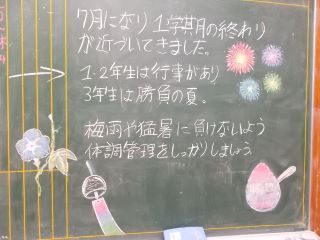 7月になり1学期の終わり
が近づいてきました。
1・2年生は行事があり
3年生は勝負の夏。
梅雨や猛暑に負けないよう
体調管理をしっかりしましょう